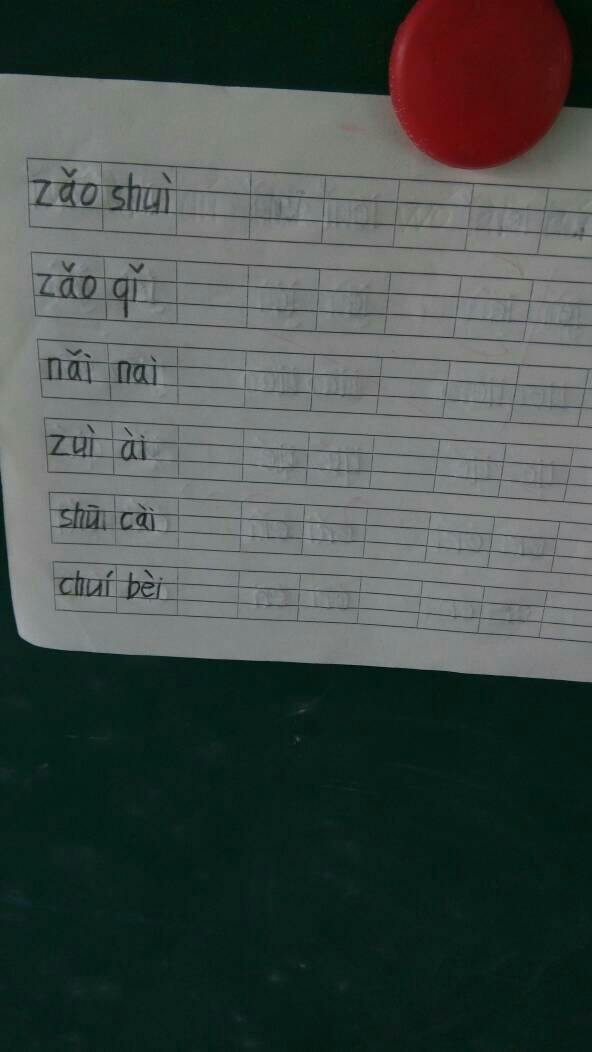 zǎo shuì
zǎo qǐ
nǎi nai
zuì ài
shū cài
chuí bèi